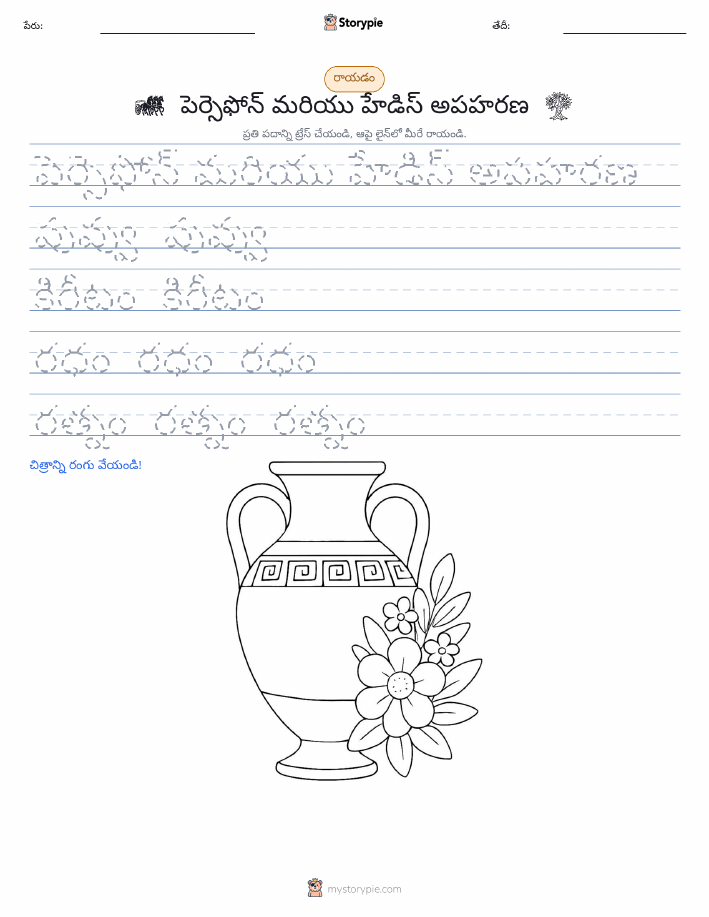 పేరు:
Storypie
తేదీ:
రాయడం
పెర్సెఫోన్ మరియు హేడిస్ అపహరణ
ప్రతి పదాన్ని ట్రేస్ చేయండి, ఆపై లైన్‌లో మీరే రాయండి.
పెర్సెఫోన్ మరియు హేడిస్ అపహరణ
పువ్వు పువ్వు
కిరీటం కిరీటం
రథం రథం రథం
చిత్రాన్ని రంగు వేయండి!
mystorypie.com